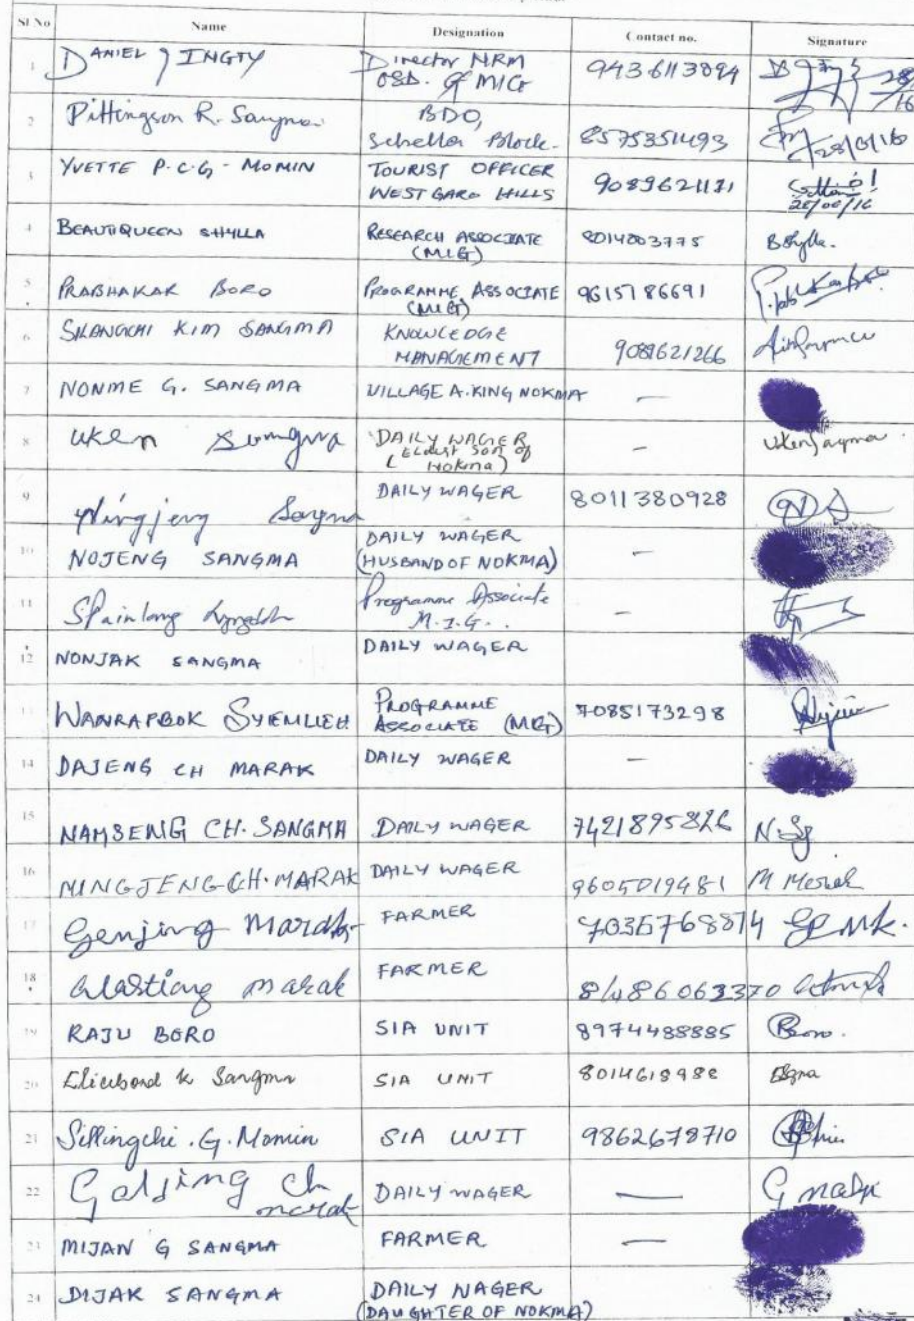 Sl No Name Designation Contact no. Signature
1 DANIEL J INGTY Director NRM 9436113894
OSD. of MIG
2 Pittingson R. Sangma BDO,
Selsella Block. 8575351493 28/6/16
3 YVETTE P.C.G- MOMIN TOURIST OFFICER
WEST GARO HILLS 9089621121
4 BEAUTIQUEEN SHYLLA RESEARCH ASSOCIATE 8014003775 BShylla.
(MIG)
5 PRABHAKAR BORO PROGRAMME ASSOCIATE 9615786691
(MIG)
6 SILANGCHI KIM SANGMA KNOWLEDGE
MANAGEMENT 9089621266
7 NONME G. SANGMA VILLAGE A.KING NOKMA —
8 uken Sangma DAILY WAGER — uken Sangma
(ELDEST SON OF
NOKMA)
9 Sangma DAILY WAGER 8011380928
10 NOJENG SANGMA DAILY WAGER —
(HUSBAND OF NOKMA)
11 Spainlang Programme Associate —
M.I.G..
12 NONJAK SANGMA DAILY WAGER
13 WANRAPBOK SYIEMLIEH PROGRAMME 7085173298
ASSOCIATE (MIG)
14 DAJENG CH MARAK DAILY WAGER —
15 NAMSENG CH. SANGMA DAILY WAGER 7421895826 N.Sg
16 MINGJENG CH. MARAK DAILY WAGER 9605019481 M Merak
17 Genjing Marak FARMER
18 marak FARMER 8486063370
19 RAJU BORO SIA UNIT 8974488885 Boro.
20 Sangma SIA UNIT 8014618988
21 Sillingchi .G. Momin SIA UNIT 9862678710
22 Goljing Ch DAILY WAGER —
marak
23 MIJAN G SANGMA FARMER —
24 DIJAK SANGMA DAILY WAGER
(DAUGHTER OF NOKMA)